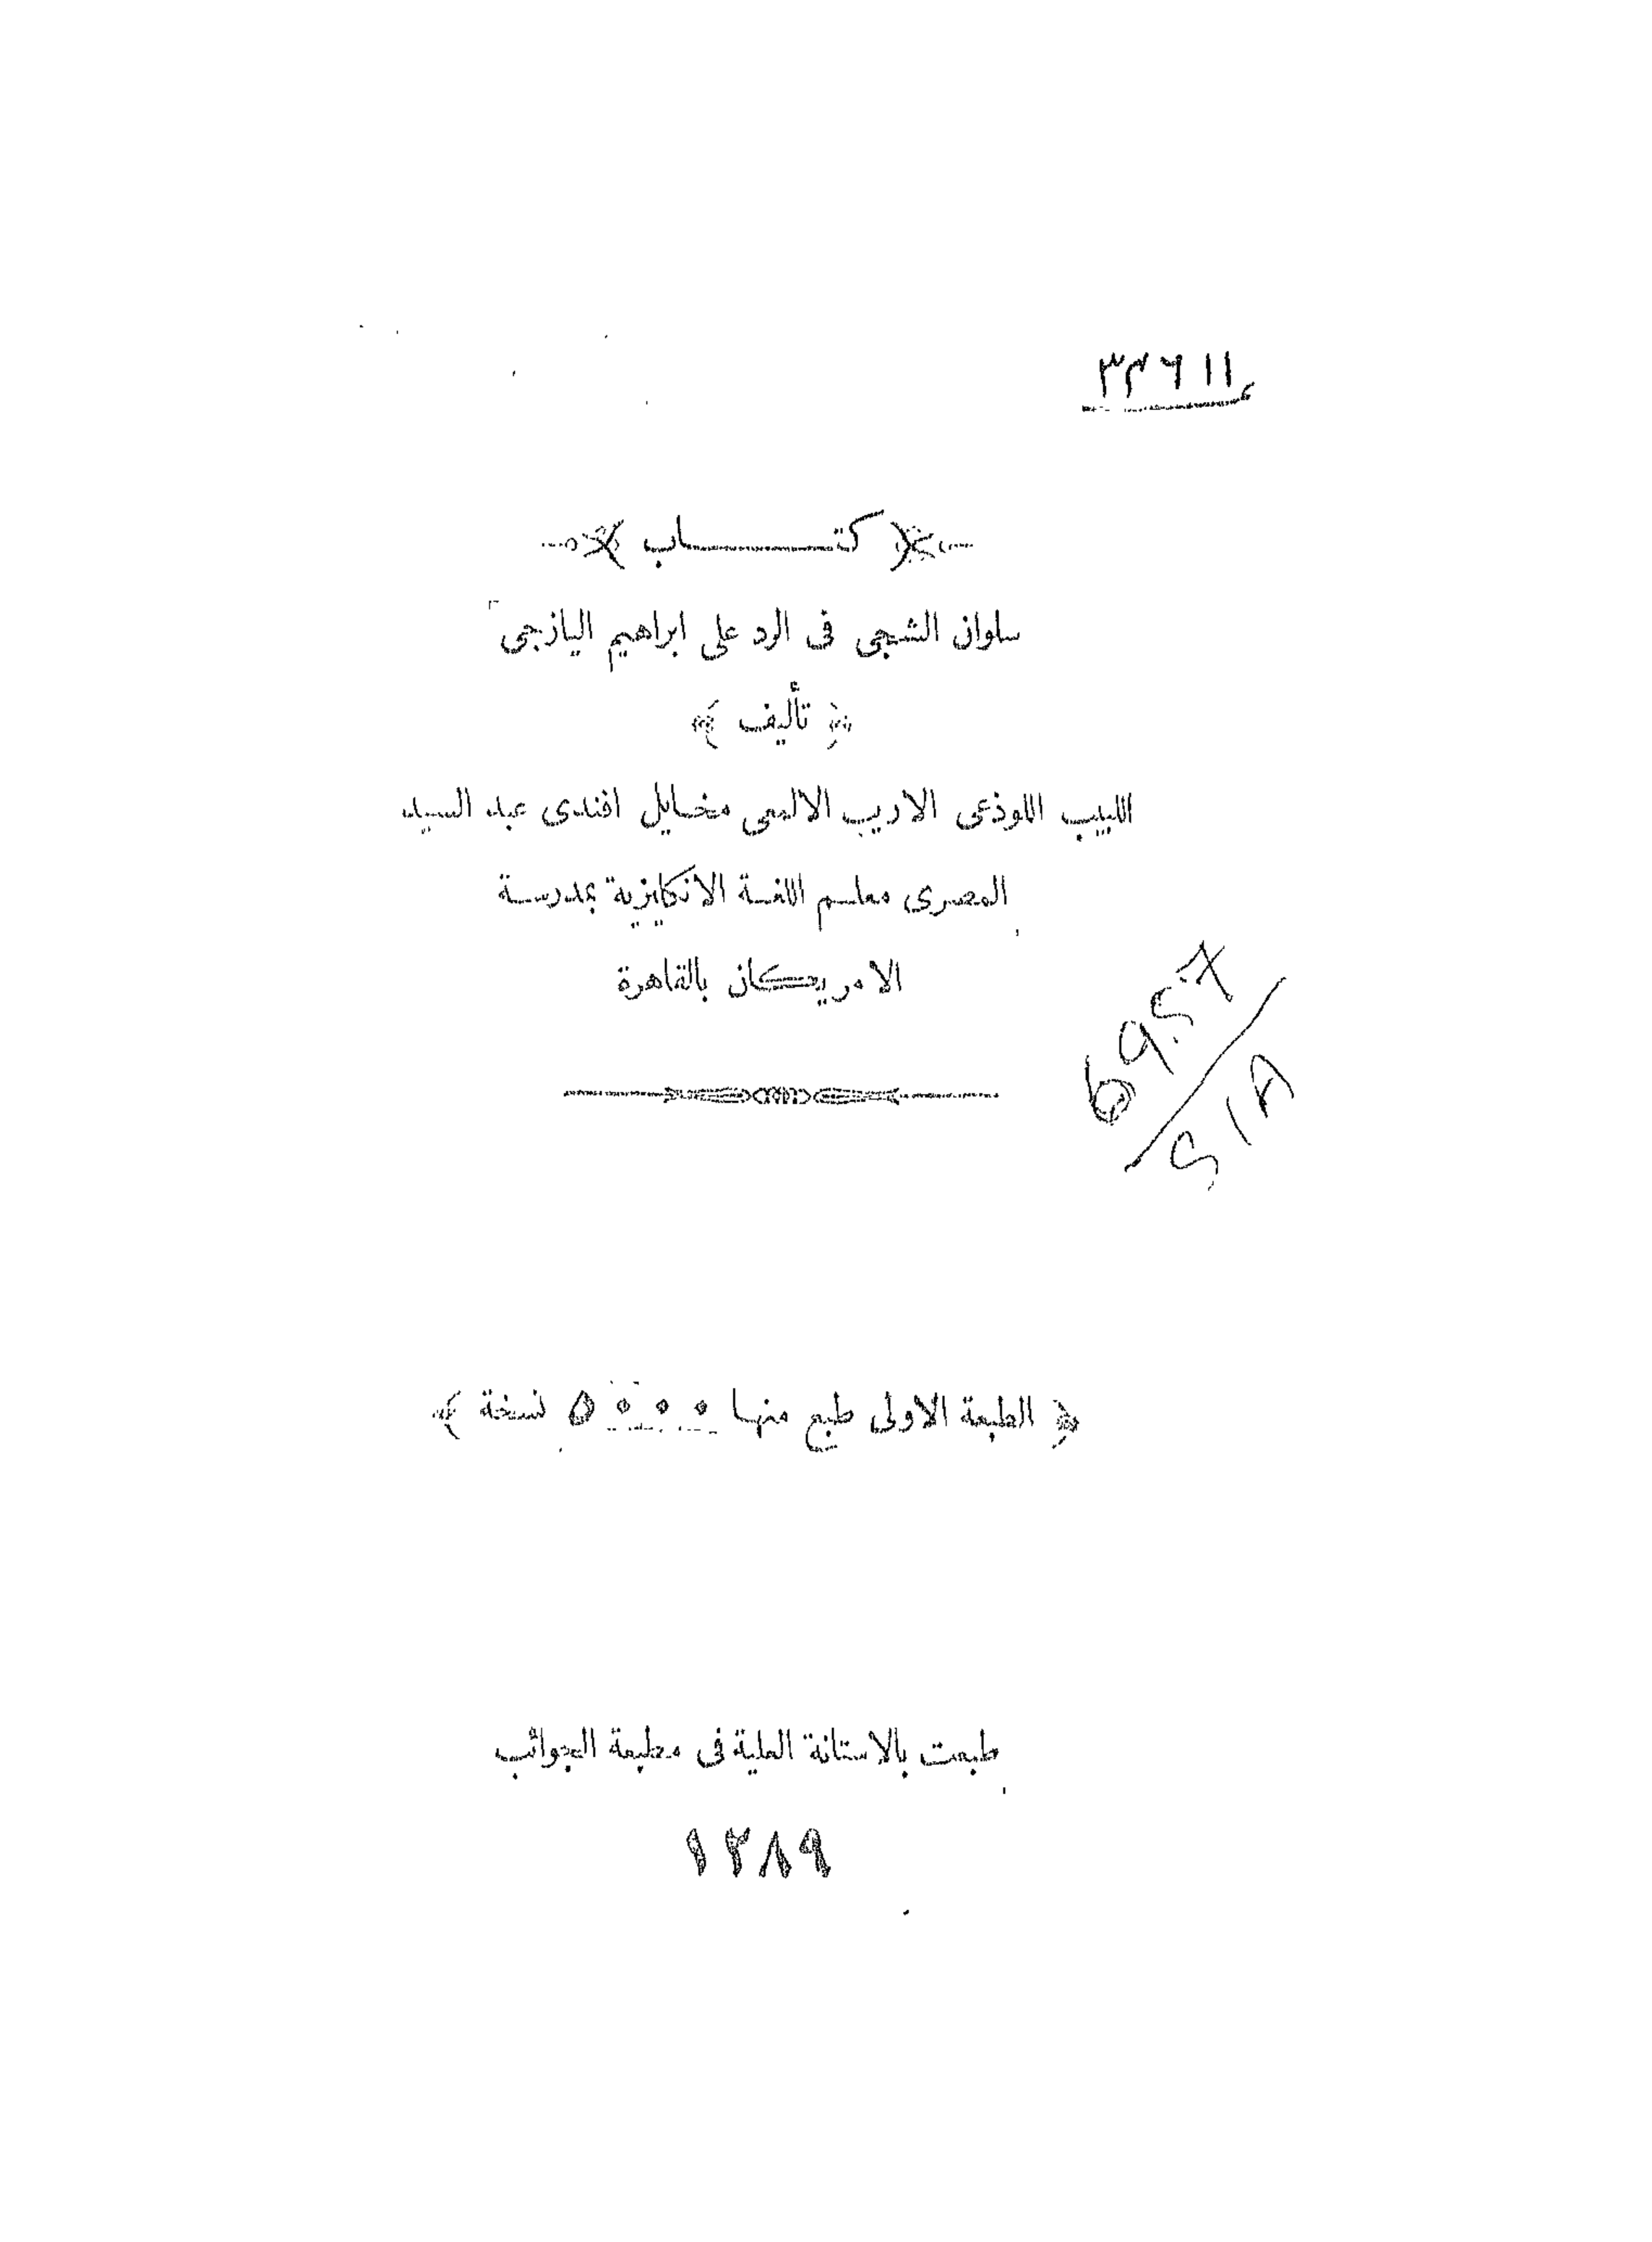 ٣٣٦١١
﴿ كتـــــاب ﴾
سلوان الشجى فى الرد على ابراهيم اليازجى
﴿ تأليف ﴾
اللبيب اللوذعى الاريب الالمعى مخايل افندى عبد السيد
المصرى معلم اللغة الانكليزية بمدرسة
الامريكان بالقاهرة
﴿ الطبعة الاولى طبع منها ٥٠٠٠ نسخة ﴾
طبعت بالاستانة العلية فى مطبعة الجوائب
١٢٨٩